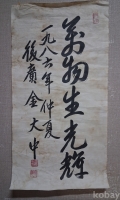 萬物生光輝
一九八六年仲夏
後廣 金大中
kobay